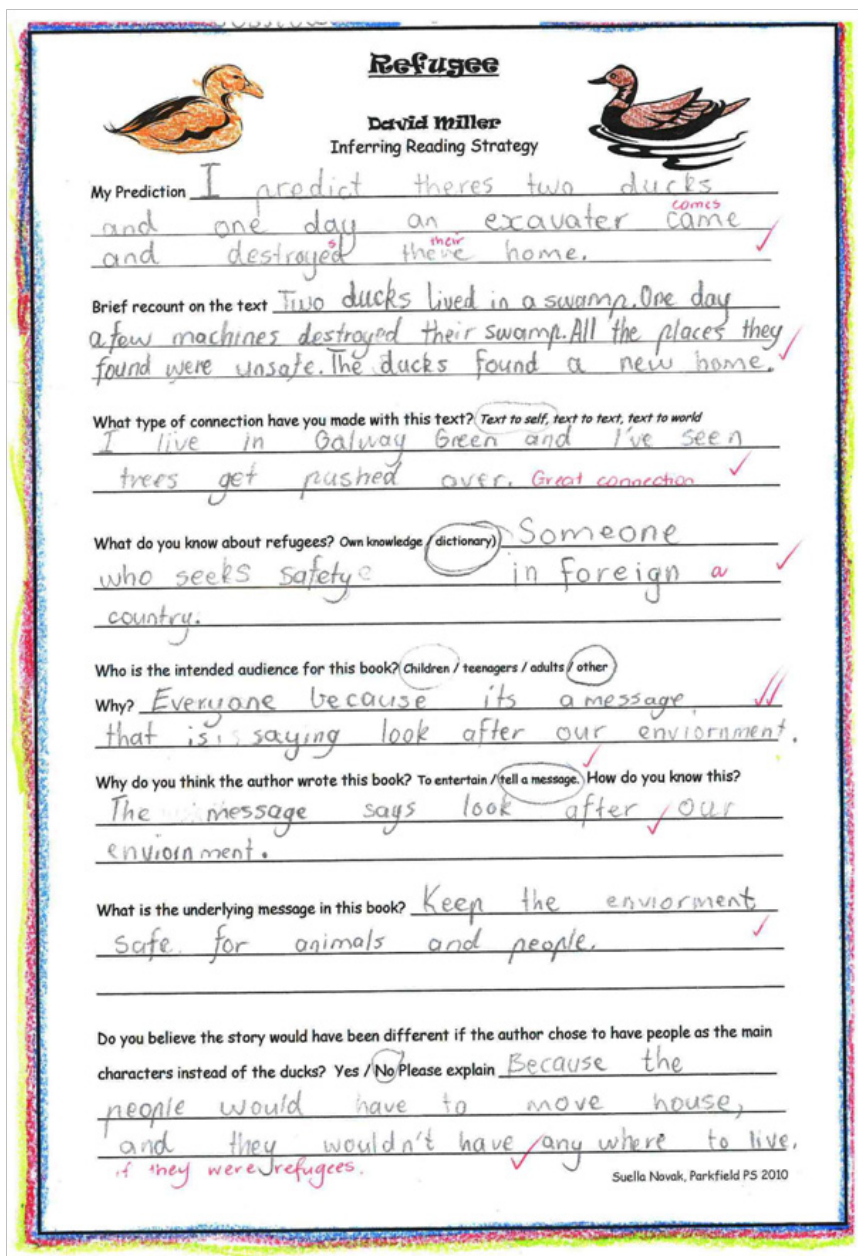 Refugee
David Miller
Inferring Reading Strategy
My Prediction I predict theres two ducks
comes
and one day an exavater came
s their
and destroyed there home.
Brief recount on the text Two ducks lived in a swamp. One day
a few machines destroyed their swamp. All the places they
found were unsafe. The ducks found a new home.
What type of connection have you made with this text? Text to self, text to text, text to world
I live in Galway Green and I've seen
trees get pushed over. Great connection
What do you know about refugees? Own knowledge / dictionary) Someone
who seeks safety in foreign a
country.
Who is the intended audience for this book? Children / teenagers / adults / other
Why? Everyone because its a message
that is saying look after our enviornment.
Why do you think the author wrote this book? To entertain / tell a message. How do you know this?
The message says look after our
enviornment.
What is the underlying message in this book? Keep the enviorment
safe for animals and people.
Do you believe the story would have been different if the author chose to have people as the main
characters instead of the ducks? Yes / No Please explain Because the
people would have to move house,
and they wouldn't have any where to live.
if they were refugees.
Suella Novak, Parkfield PS 2010